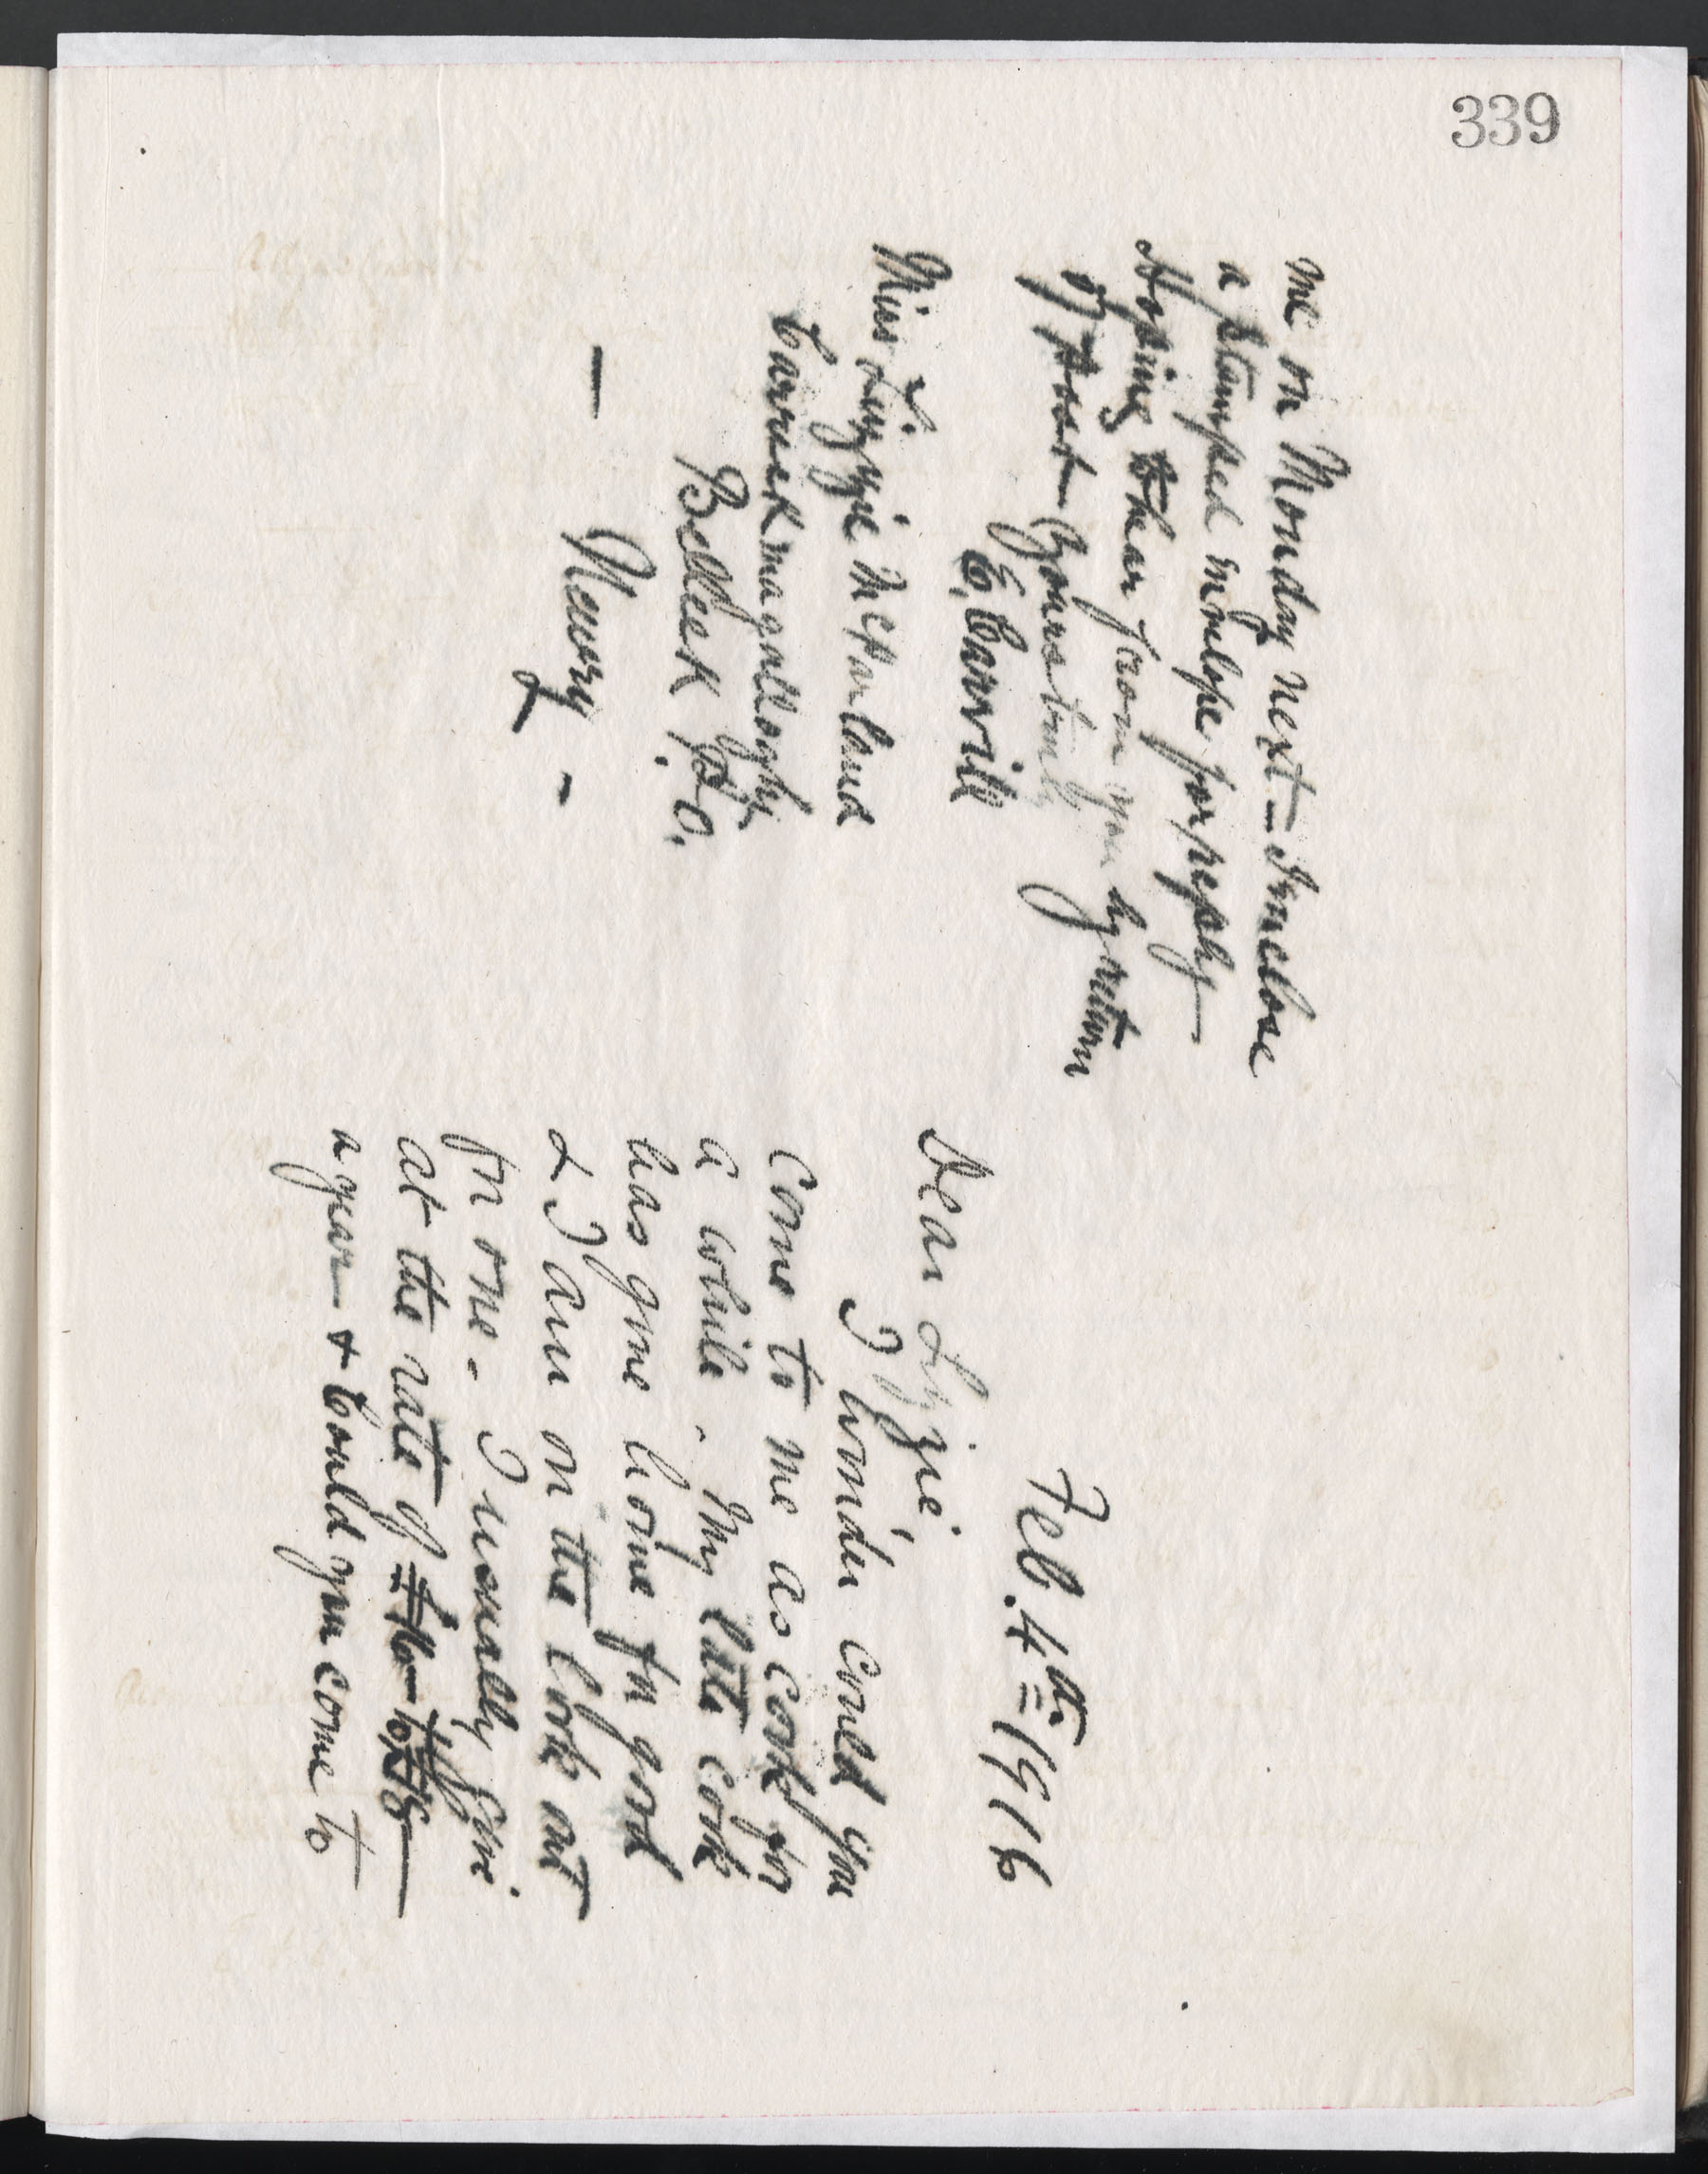 339
Feb. 4th = 1916
Dear Lizzie,
I wonder could you
come to me as cook for
a while. My late cook
has gone home for good
& I am on the look out
for one - I usually give
at the rate of £16 to £18
a year - & Could you come to
me on Monday next - I inclose
a stamped envelope for reply -
Hoping to hear from you by return
of post - Yours truly
E. Carvill
Miss Lizzie McParland
Carrickmagalloghy
Belleek P.O.
- Newry -